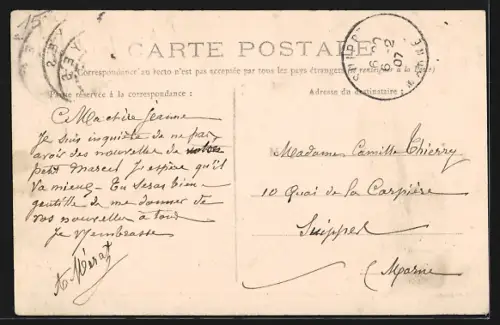 15
CARTE POSTALE
(Correspondance au recto n'est pas acceptée par tous les pays étrangers (se renseigner à la Poste)
Partie réservée à la correspondance :
Adresse du destinataire :
6-2
07
Ma chère Jeanne
Je suis inquiète de ne pas
avoir des nouvelles de notre
petit Marcel J'espère qu'il
va mieux - Tu seras bien
gentille de me donner de
vos nouvelles à tous
Je t'embrasse
Madame Camille Thierry
10 Quai de la Carpière
Suippes
(Marne